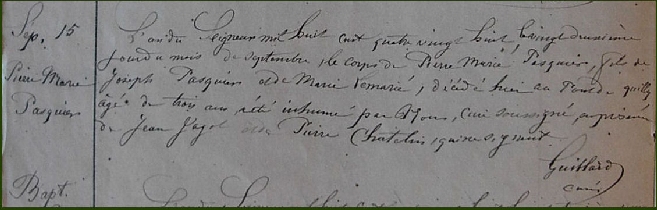 Sep. 15
Pierre Marie
Pasquier
L'an du Seigneur mil huit cent quatre vingt huit, le vingt deuxième
jour du mois de septembre, le corps de Pierre Marie Pasquier, fils de
Joseph Pasquier et de Marie Lemarié, décédé hier au Pont de quilly
âgé de trois ans a été inhumé par Nous, curé soussigné, en présence
de Jean Jagot et de Pierre Chatelin, qui ne signent.
Guillard
curé
Bapt.